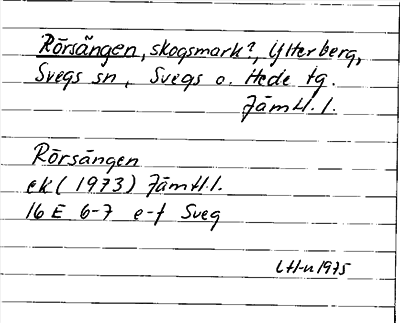 Rörsängen, skogsmark?, Ytterberg,
Svegs sn, Svegs o. Hede tg.
Jämtl. l.
Rörsängen
ek (1973) Jämtl. l.
16 E 6-7 e-f Sveg
LH-n 1975